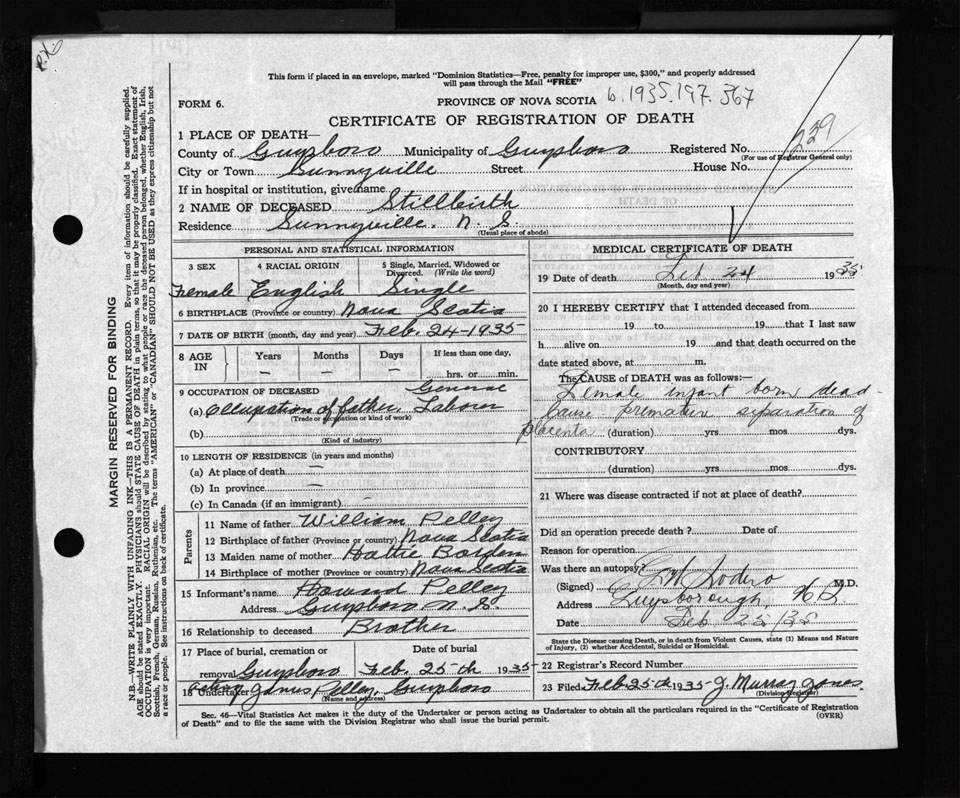 R.X.
This form if placed in an envelope, marked "Dominion Statistics—Free, penalty for improper use, $300," and properly addressed
will pass through the Mail "FREE"
6.1935.197.367
FORM 6.
PROVINCE OF NOVA SCOTIA
CERTIFICATE OF REGISTRATION OF DEATH
239
1 PLACE OF DEATH—
County of Guysboro Municipality of Guysboro Registered No.
(For use of Registrar General only)
City or Town Sunnyville Street House No.
If in hospital or institution, give name
2 NAME OF DECEASED Stillbirth
Residence Sunnyville. N S.
(Usual place of abode)
PERSONAL AND STATISTICAL INFORMATION
3 SEX 4 RACIAL ORIGIN 5 Single, Married, Widowed or Divorced. (Write the word)
Female English Single
6 BIRTHPLACE (Province or country) Nova Scotia
7 DATE OF BIRTH (month, day and year) Feb. 24-1935
8 AGE IN Years Months Days If less than one day,
— — — hrs. or min.
9 OCCUPATION OF DECEASED General
(a) Occupation of father. Labour
(Trade or occupation or kind of work)
(b)
(Kind of industry)
10 LENGTH OF RESIDENCE (in years and months)
(a) At place of death —
(b) In province —
(c) In Canada (if an immigrant) -
Parents
11 Name of father William Pelley
12 Birthplace of father (Province or country) Nova Scotia
13 Maiden name of mother Hattie Borden
14 Birthplace of mother (Province or country) Nova Scotia
15 Informant's name Howard Pelley
Address Guysboro N. S.
16 Relationship to deceased Brother
17 Place of burial, cremation or Date of burial
removal Guysboro Feb. 25th 1935-
acting
18 Undertaker James Pelley, Guysboro
(Name and address)
MEDICAL CERTIFICATE OF DEATH
19 Date of death Feb 24 1935
(Month, day and year)
20 I HEREBY CERTIFY that I attended deceased from
19 to 19 that I last saw
h alive on 19 and that death occurred on the
date stated above, at m.
The CAUSE OF DEATH was as follows:—
Female infant born dead
Cause premature separation of
placenta (duration) yrs mos dys.
CONTRIBUTORY
(duration) yrs mos dys.
21 Where was disease contracted if not at place of death?
Did an operation precede death? Date of
Reason for operation
Was there an autopsy?
(Signed) Sodero M.D.
Address Guysborough, N S
Date Feb 25/35
State the Disease causing Death, or in death from Violent Causes, state (1) Means and Nature
of Injury, (2) whether Accidental, Suicidal or Homicidal.
22 Registrar's Record Number
23 Filed Feb 25th 1935 J. Murray Jones
(Division Registrar)
Sec. 46—Vital Statistics Act makes it the duty of the Undertaker or person acting as Undertaker to obtain all the particulars required in the "Certificate of Registration
of Death" and to file the same with the Division Registrar who shall issue the burial permit. (OVER)
MARGIN RESERVED FOR BINDING
N.B.—WRITE PLAINLY WITH UNFADING INK—THIS IS A PERMANENT RECORD. Every item of information should be carefully supplied.
AGE should be stated EXACTLY. PHYSICIANS should STATE CAUSE OF DEATH in plain terms, so that it may be properly classified. Exact statement of
OCCUPATION is very important. RACIAL ORIGIN will be described by stating to what people or race the deceased person belonged, whether English, Irish,
Scottish, French, German, Russian, Ruthenian, etc. The terms "AMERICAN" or "CANADIAN" SHOULD NOT BE USED as they express citizenship but not
a race or people. See instructions on back of certificate.